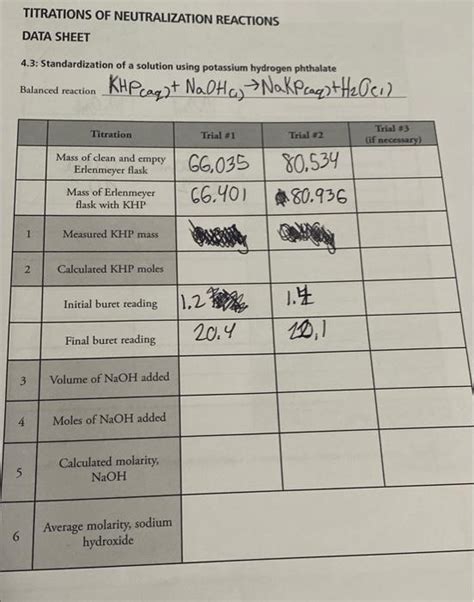 TITRATIONS OF NEUTRALIZATION REACTIONS
DATA SHEET
4.3: Standardization of a solution using potassium hydrogen phthalate
Balanced reaction KHP(aq) + NaOH(s) → NaKP(aq) + H2O(l)
Titration Trial #1 Trial #2 Trial #3
(if necessary)
Mass of clean and empty
Erlenmeyer flask 66,035 80.534
Mass of Erlenmeyer
flask with KHP 66.401 80.936
1 Measured KHP mass
2 Calculated KHP moles
Initial buret reading 1.2
Final buret reading 20.4
3 Volume of NaOH added
4 Moles of NaOH added
5 Calculated molarity,
NaOH
6 Average molarity, sodium
hydroxide